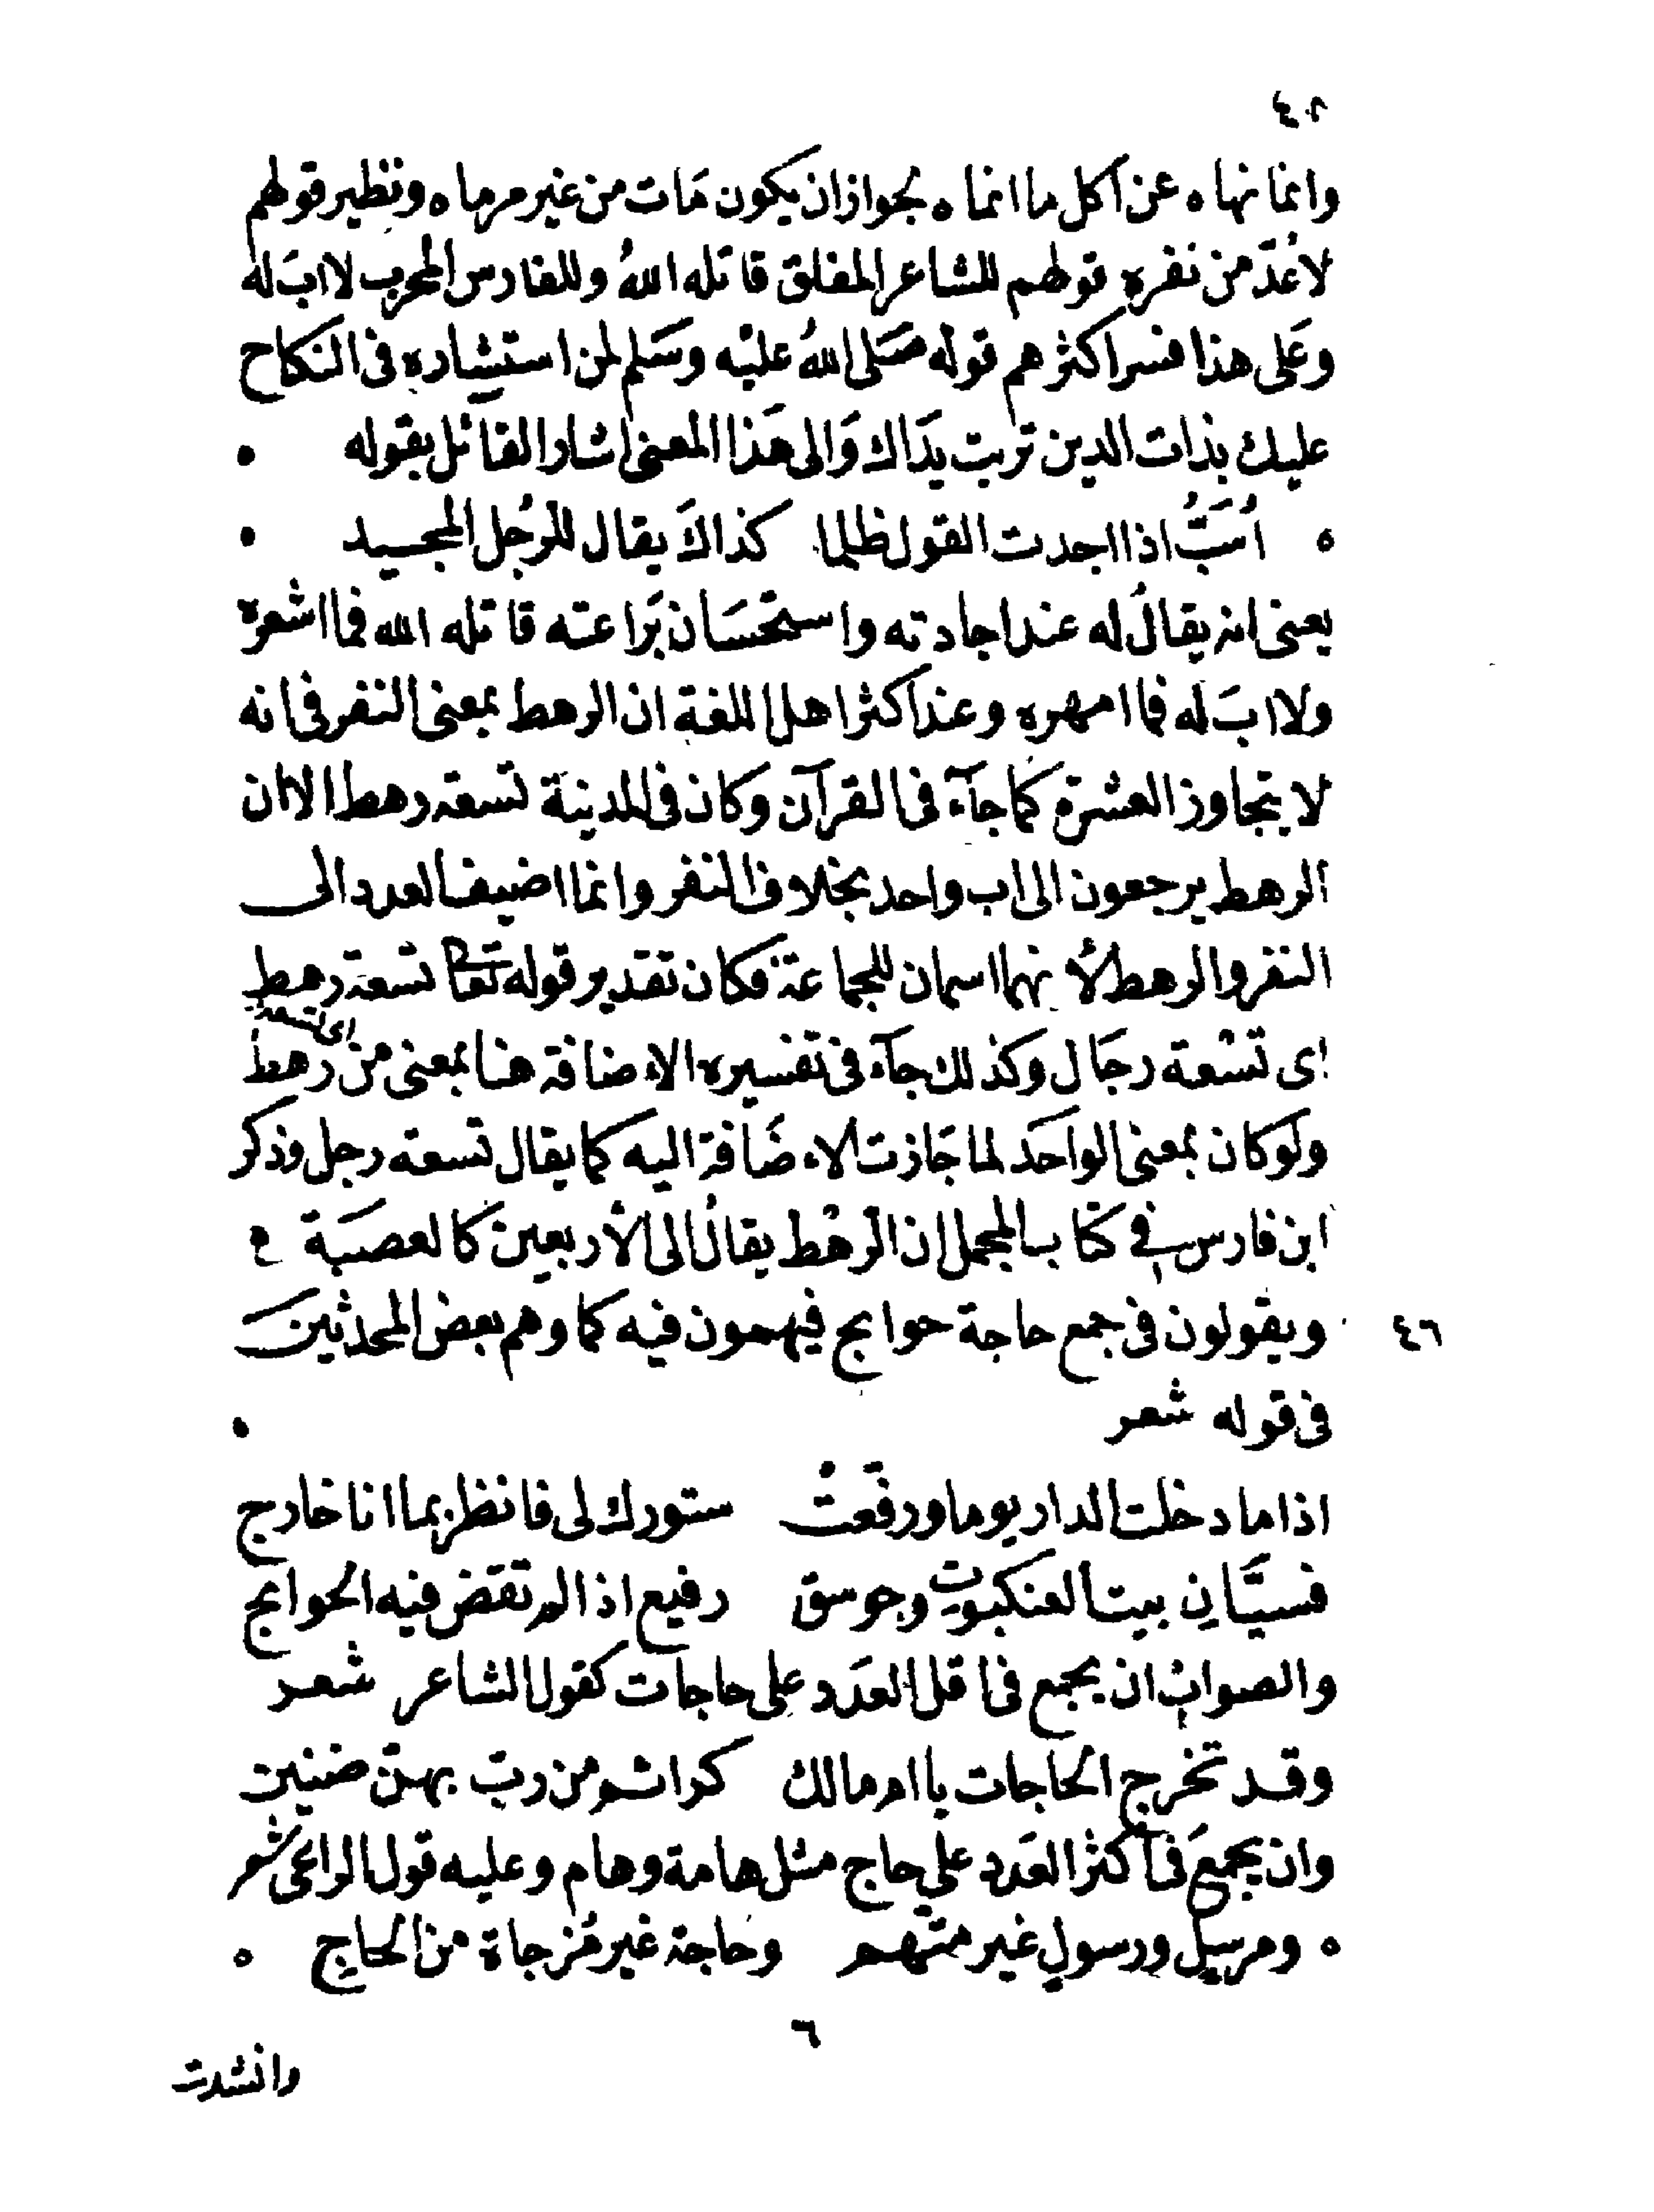 ٤٢
وانما نهاه عن اكل ما انماه لجواز ان يكون مَات من غير مرماه ونظير قولهم
لاعُدّ من نفره قولهم للشاعر المفلق قاتله اللهُ وللفارس المحرب لا ابَ له
وعَلى هذا فسر اكثرهم قوله صَلى اللهُ عليْه وسَلم لمن استشاره فى النكاح
عليك بذات الدين تربت يدَاك وَالى هَذا المعنى اشار القائل بقوله
اُسَبُّ اذا اجدت القول ظلما كذاكَ يقال للرّجُل المجيد
يعنى انه يقالُ له عند اجادته واستحسَان بَراعته قاتله الله فما اشعره
ولا ابَ له فما امهره وعند اكثر اهل اللغة ان الرهط بمعنى النفر فى انه
لا يتجاوز العشرة كما جآء فى القرآن وكان فى المدينة تسعة رهط الا ان
الرهط يرجعون الى اب واحد بخلاف النفر وانما اضيف العدد الى
النفر والرهط لأنهما اسمان للجماعة فكان تقدير قوله تعَا تسعة رهط
اى تسْعة رجَال وكذلك جآء فى تفسيره الاءضافة هنا بمعنى من اى تسعة من رهط
ولو كان بمعنى الواحَد لما جَازت الاءضَافة اليه كما يقال تسعة رجل وذكر
ابن فارس فى كتاب المجمل ان الرهْط يقالُ الى الأربعين كالعصبَة
٤٦ ويقولون فى جمع حاجة حوايج فيهمون فيه كما وهم بعض المحدثينَ
فى قوله شعر
اذا ما دخلت الدار يوما ورفّعتْ ستورك لى فانظر بما انا خارج
فسيَّانِ بيت العنكبوت وجوسق رفيع اذا لم تقضَ فيه الحوايج
والصوابُ ان يجمع فى اقل العدَد على حاجات كقول الشاعر شعر
وقد تخرج الحاجات يا ام مالك كرائم من ربّ بهنّ ضنين
وان يجمَعَ فى اكثر العَدد على حاج مثل هامة وهام وعليه قول الراعى شعر
ومرسلٍ ورسولٍ غير متّهم وحاجة غير مُزجاة من الحاجِ
٦
وانشدت